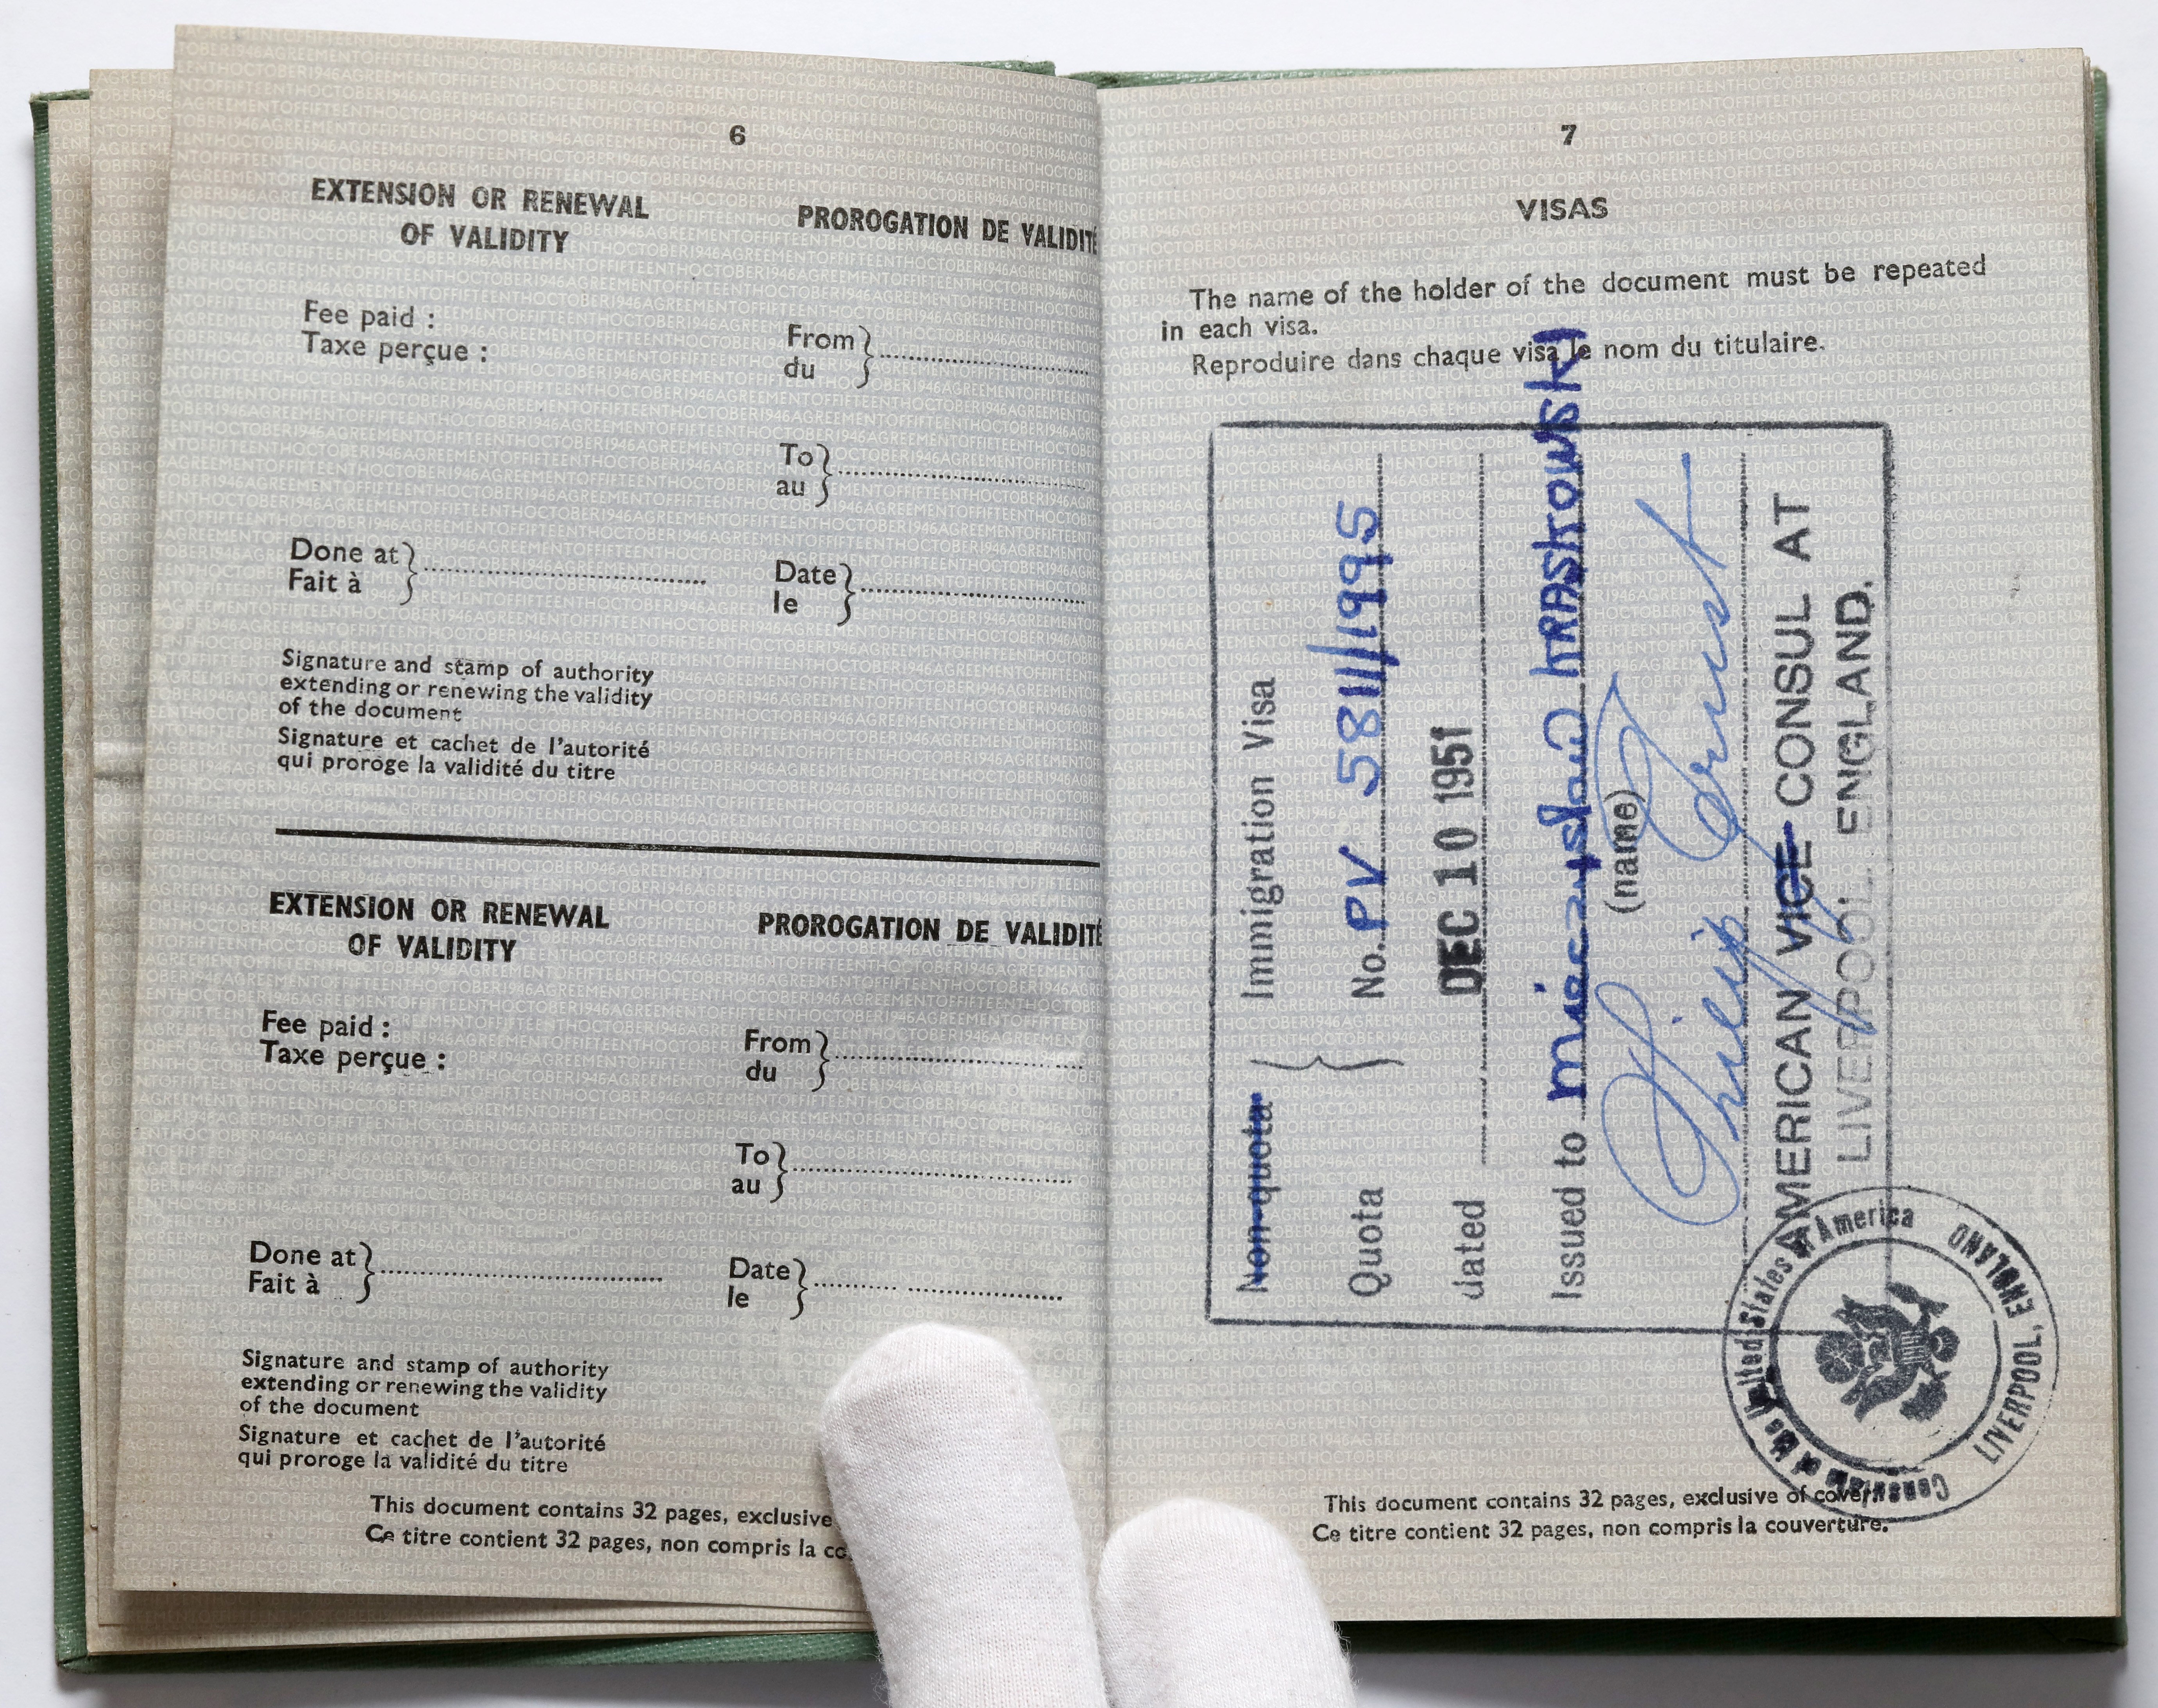 6
EXTENSION OR RENEWAL
OF VALIDITY
PROROGATION DE VALIDITÉ
Fee paid :
Taxe perçue :
From
du
To
au
Done at
Fait à
Date
le
Signature and stamp of authority
extending or renewing the validity
of the document
Signature et cachet de l'autorité
qui proroge la validité du titre
EXTENSION OR RENEWAL
OF VALIDITY
PROROGATION DE VALIDITÉ
Fee paid :
Taxe perçue :
From
du
To
au
Done at
Fait à
Date
le
Signature and stamp of authority
extending or renewing the validity
of the document
Signature et cachet de l'autorité
qui proroge la validité du titre
This document contains 32 pages, exclusive
Ce titre contient 32 pages, non compris la co
7
VISAS
The name of the holder of the document must be repeated
in each visa.
Reproduire dans chaque visa le nom du titulaire.
Non-quota Immigration Visa
Quota No. PV 5811/1995
dated DEC 10 1951
Issued to Mieczyslaw KRASKOWSKI
(name)
Philip Ernst
AMERICAN VICE CONSUL AT
LIVERPOOL, ENGLAND.
Consulate of the United States of America
LIVERPOOL, ENGLAND
This document contains 32 pages, exclusive of cover.
Ce titre contient 32 pages, non compris la couverture.
AGREEMENTOFFIFTEENTHOCTOBER1946